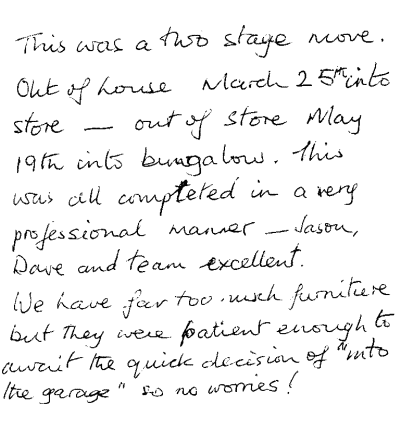 This was a two stage move.
Out of house March 25th into
store — out of store May
19th into bungalow. This
was all completed in a very
professional manner — Jason,
Dave and team excellent.
We have far too much furniture
but they were patient enough to
await the quick decision of "into
the garage" so no worries!